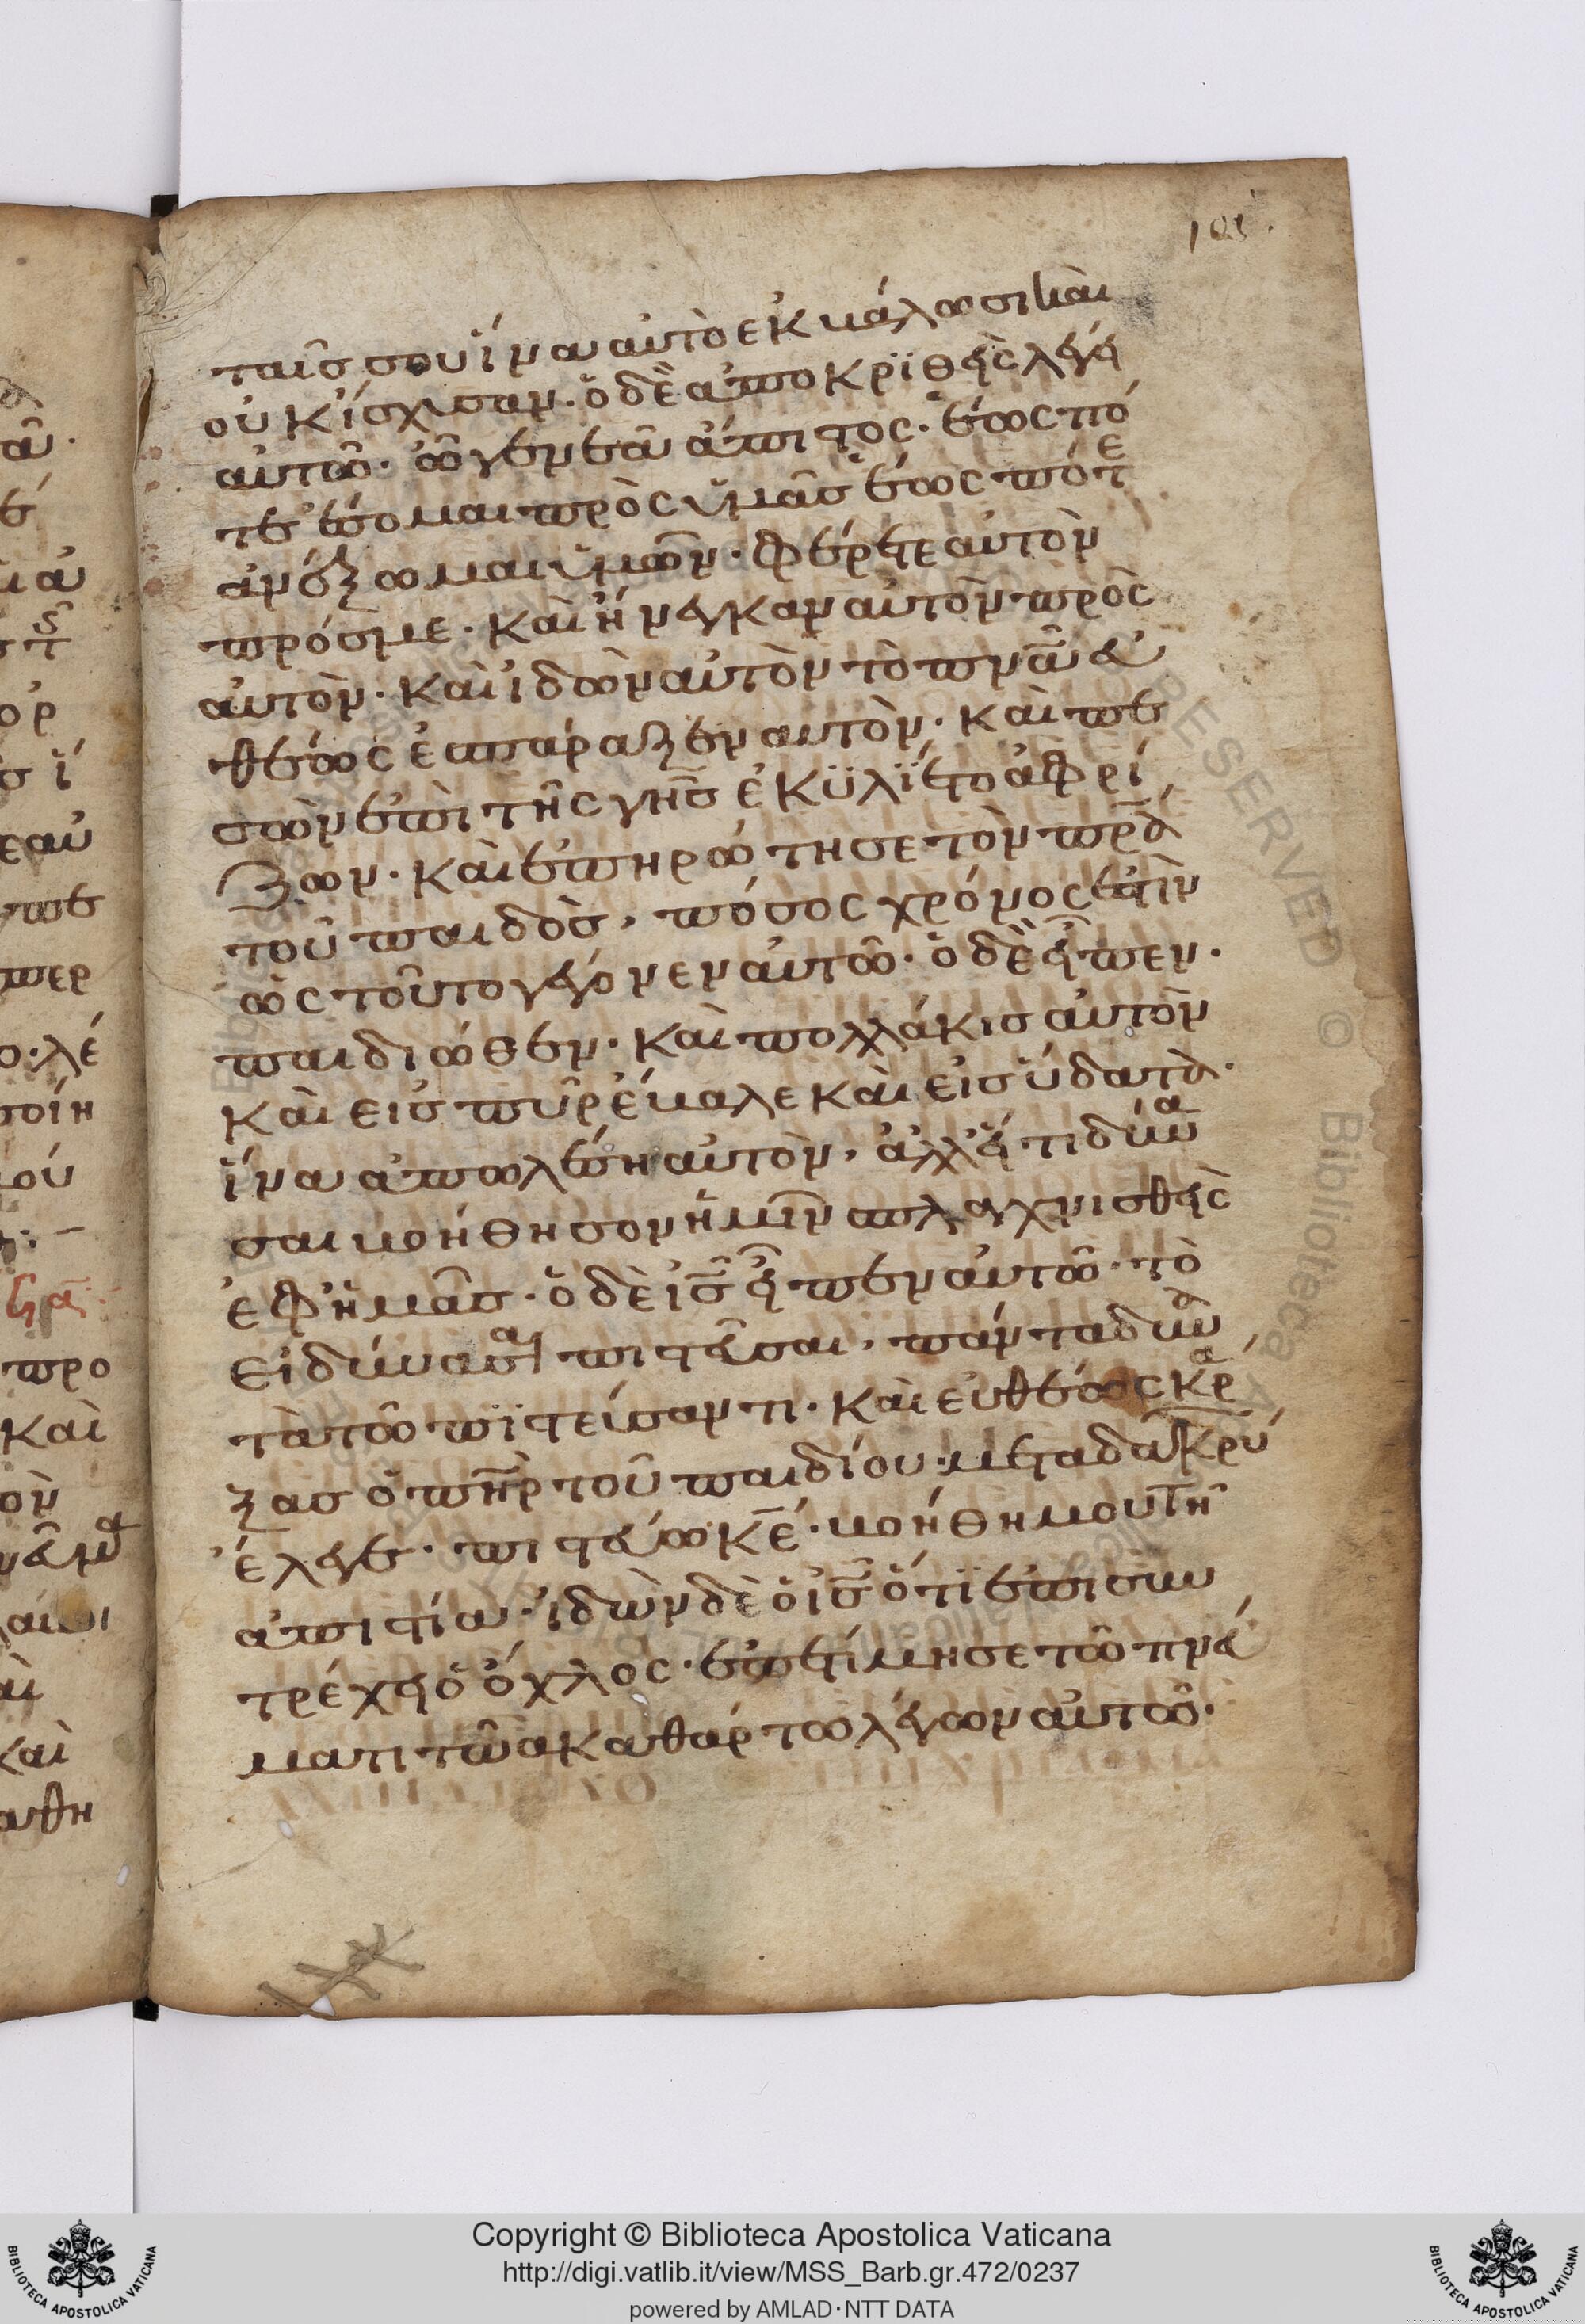 105
ταῖσ σου ἵνα αὐτὸ ἐκβάλωσι καὶ
οὐκ ἴσχυσαν. ὁ δὲ ἀποκριθεὶς λέγει
αὐτῶ. ὦ γενεὰ ἄπιστος. ἕως πό
τε ἔσομαι πρὸς ὑμᾶσ ἕως πότε
ἀνέξωμαι ὑμῶν. φέρετε αὐτὸν
πρόσ με. καὶ ἤνεγκαν αὐτὸν πρὸς
αὐτὸν. καὶ ἰδὼν αὐτὸν τὸ πνᾶ εὐ
θέως ἐσπάραξεν αυτὸν. καὶ πε
σὼν ἐπὶ τῆς γῆσ ἐκϋλϊετο ἀφρί
ζων. καὶ ἐπηρώτησε τὸν πρ̅α
τοῦ παιδὸσ, πόσος χρόνος ἐστὶν
ὡς τοῦτο γέγονεν αὐτῶ. ὁ δὲ εἶπεν.
παιδιόθεν. καὶ πολλάκισ αὐτὸν
καὶ εισ πῦρ ἔβαλε καὶ εἰσ ὕδατα.
ἵνα ἀπωλέση αὐτὸν, ἀλλ' εἴ τι δύνα
σαι βοήθησον ἡμῖν σπλαχνισθεὶς
ἐφ ἡμᾶσ. ὁ δὲ ισ̅ εἶπεν αὐτῶ. τὸ
εἰ δύνασαι πιστεῦσαι, πάντα δυνα
τὰ τῶ πϊστεύσαντι. καὶ εὐθέως κρά
ξασ ὁ πη̅ρ τοῦ παιδίου. μετα δακρύ
ἔλεγε. πιστεύω κ̅ε. βοήθη μου τῆ
ἀπιστία. ἰδὼν δὲ ὁ ισ̅ ὅτϊ ἐπισυν
τρέχει ὁ ὄχλος. ἐπετίμησε τῶ πνεύ
ματι τῶ ἀκαθάρτω λέγων αὐτῶ.
Copyright © Biblioteca Apostolica Vaticana
http://digi.vatlib.it/view/MSS_Barb.gr.472/0237
powered by AMLAD·NTT DATA